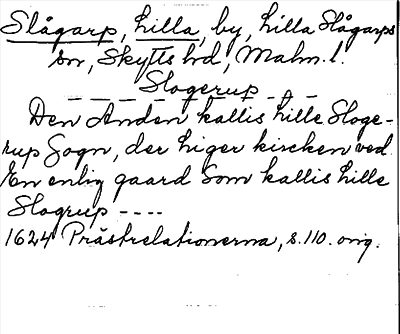 Slågarp, Lilla, by, Lilla Slågarps
sn, Skytts hd, Malm. l.
Slogerup
— — — — — — — —
Den Anden kallis hille Sloge-
rup Sogn, der higer kircken ved.
En enlig gaard Som kallis hille
Slogrup - - - -
1624 Prästrelationerna, s. 110. orig.